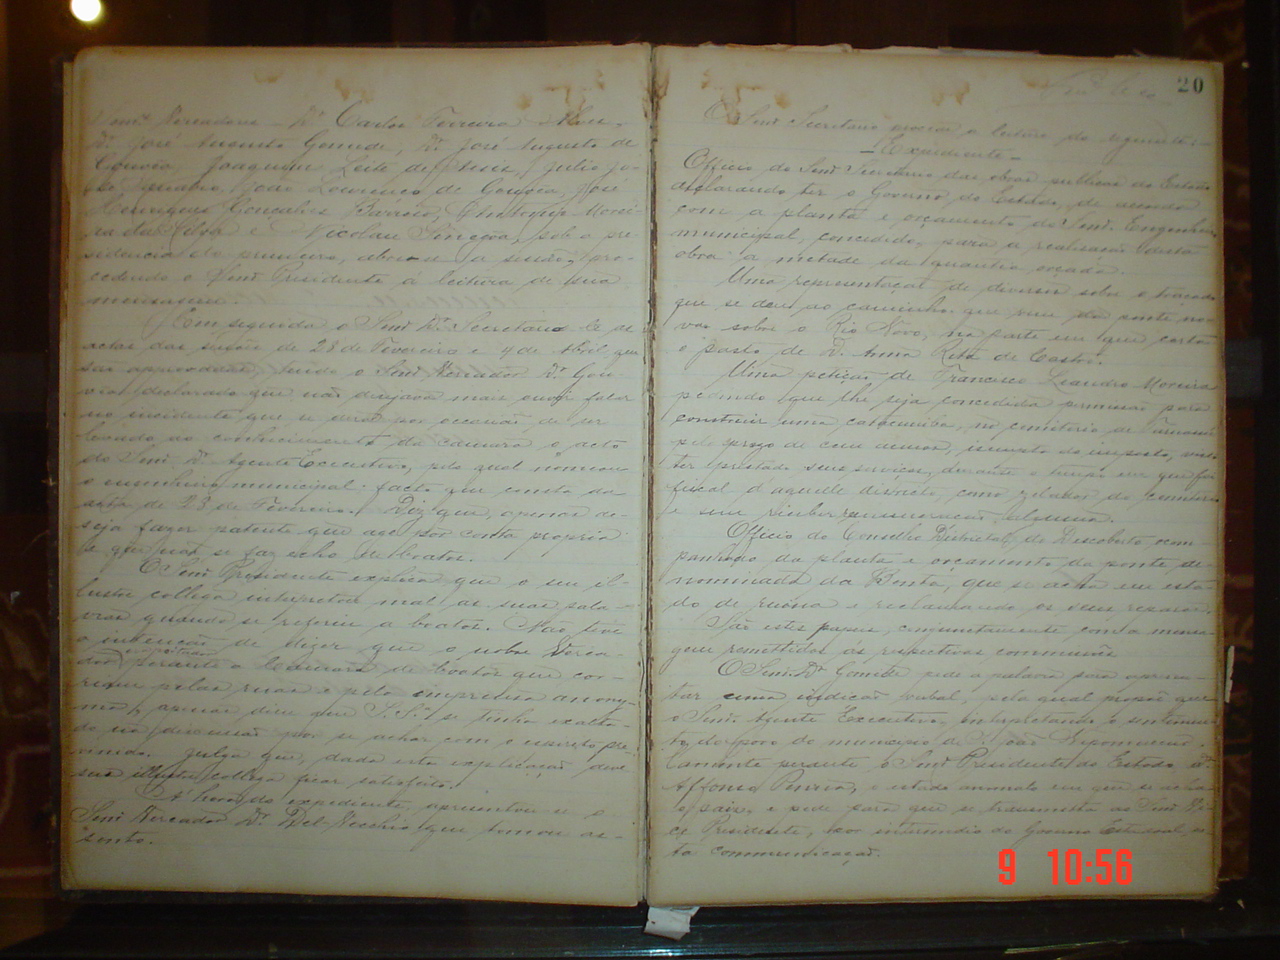 Senr. Vereadores Dr. Carlos Ferreira Alves,
Dr. José Augusto Gomide, Dr. José Augusto de
Gouvêa, Joaquim Leite de Julio Jo-
sé João Lourenço de Gouvêa, José
Henriques Gonçalves Christovão Morei-
ra da Silva e Nicolau sob a pre-
sidencia do primeiro, abriu-se a sessão, pro-
cedendo o Senr. Presidente á leitura de sua
mensagem.
Em seguida o Senr. Dr. Secretario lê as
actas das sessões de 28 de Fevereiro e 4 de Abril, que
são approvadas, tendo o Senr. Vereador Dr. Gou-
vêa declarado que não desejava mais ouvir fallar
no incidente que se deu por occasião de ser
levado ao conhecimento da camara o acto
do Senr. Dr. Agente Executivo, pelo qual nomeou
o engenheiro municipal: facto que consta da
acta de 28 de Fevereiro. Diz que, apenas de-
seja fazer patente que age por conta propria
e que não se faz echo de boatos.
O Senr. Presidente explica que o seu il-
lustre collega interpretou mal as suas pala-
vras quando se referiu a boatos. Não teve
a intenção de dizer que o nobre Verea-
dor perante a Camara de boatos que cor-
rem pelas ruas e pela imprensa anony-
ma, apenas disse que S. Sa. se tinha exalta-
do na discussão por se achar com o espirito pre-
venido. Julga que, dada esta explicação, deve
seu illustre collega ficar satisfeito.
A' hora do expediente, apresentou-se o
Senr. Vereador Dr. Del-Vecchio que tomou as-
sento.
20
O Senr. Secretario procede a leitura do seguinte:-
- Expediente -
Officio do Senr. Secretario das obras publicas do Estado
declarando ter o Governo do Estado, de accordo
com a planta e orçamento do Senr. Engenheiro
municipal, concedido, para a realisação desta
obra a metade da quantia orçada.
Uma representação de diversos sobre o traçado
que se deu ao caminho que vem da ponte no-
va sobre o Rio Novo, na parte em que corta
o pasto de D. Anna Rita de Castro.
Uma petição de Francisco Leandro Moreira
pedindo que lhe seja concedida permissão para
construir uma catacumba, no cemiterio de
pelo prazo de cem annos, isento do imposto, visto
ter prestado seus serviços, durante o tempo em que foi
fiscal d'aquelle districto, como zelador do cemiterio
e sem receber remuneração alguma.
Officio do Conselho Districtal do Descoberto acom-
panhado da planta e orçamento da ponte de-
nominada da que se acha em esta-
do de ruina e reclamando os seus reparos.
São estes papeis, conjunctamente com a mensa-
gem remettidos ás respectivas commissões
O Senr. Dr. Gomide pede a palavra para apresen-
tar uma indicação verbal, pela qual propõe que
o Senr. Agente Executivo, interpretando o sentimen-
to do povo do municipio de S. João Nepomuceno,
lamente perante o Senr. Presidente do Estado Dr.
Affonso Penna, o estado anomalo em que se acha
o paiz, e pede para que se transmitta ao Senr. Vi-
ce Presidente, por intermedio do Governo Estadoal, es-
ta communicação.
9 10:56